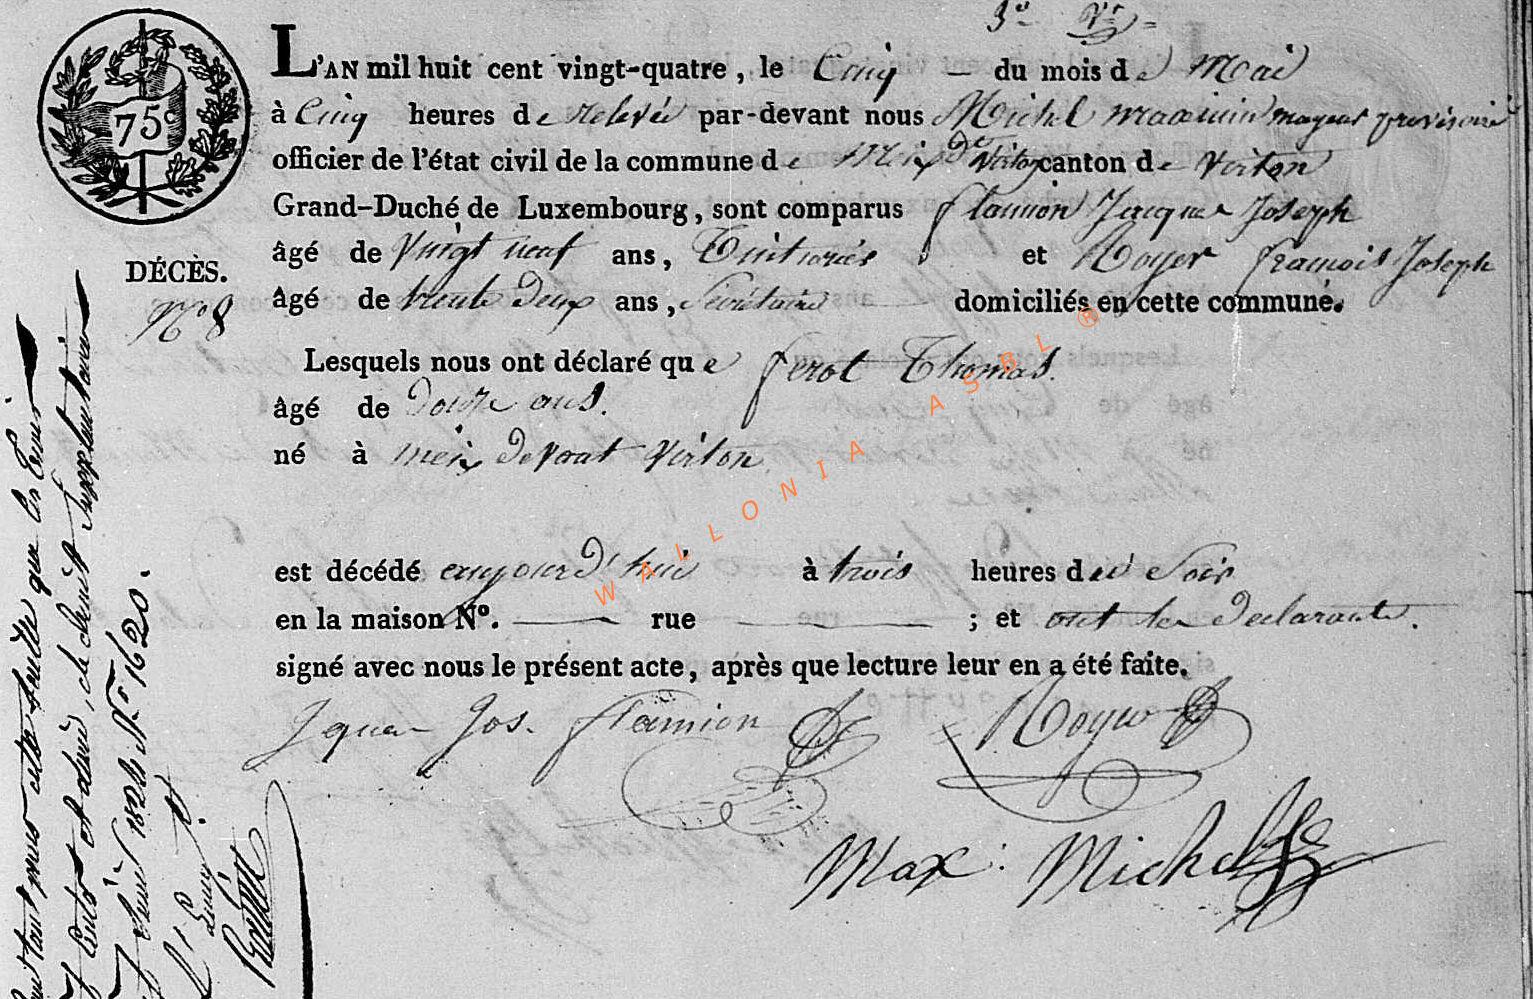 3e Vt
L'AN mil huit cent vingt-quatre, le Cinq — du mois de Mai
à Cinq heures de relevée par-devant nous Michel maximin mayeur provisoire
officier de l'état civil de la commune de Meix dt Virton canton de virton
Grand-Duché de Luxembourg, sont comparus flamion Jacque Joseph
âgé de Vingt neuf ans, Tinturier et Royer francois Joseph
âgé de trente deux ans, Secrétaire domiciliés en cette commune.
Lesquels nous ont déclaré que ferot Thomas.
âgé de douze ans.
né à meix devant virton
est décédé aujourd'hui à trois heures du Soir
en la maison N°. — rue — ; et ont les declarants.
signé avec nous le présent acte, après que lecture leur en a été faite.
Jque Jos. flamion Royer
Max: Michel
75c
DÉCÈS.
N° 8
pour cette feuille que les
1824 N° 1620.
WALLONIA ASBL ®